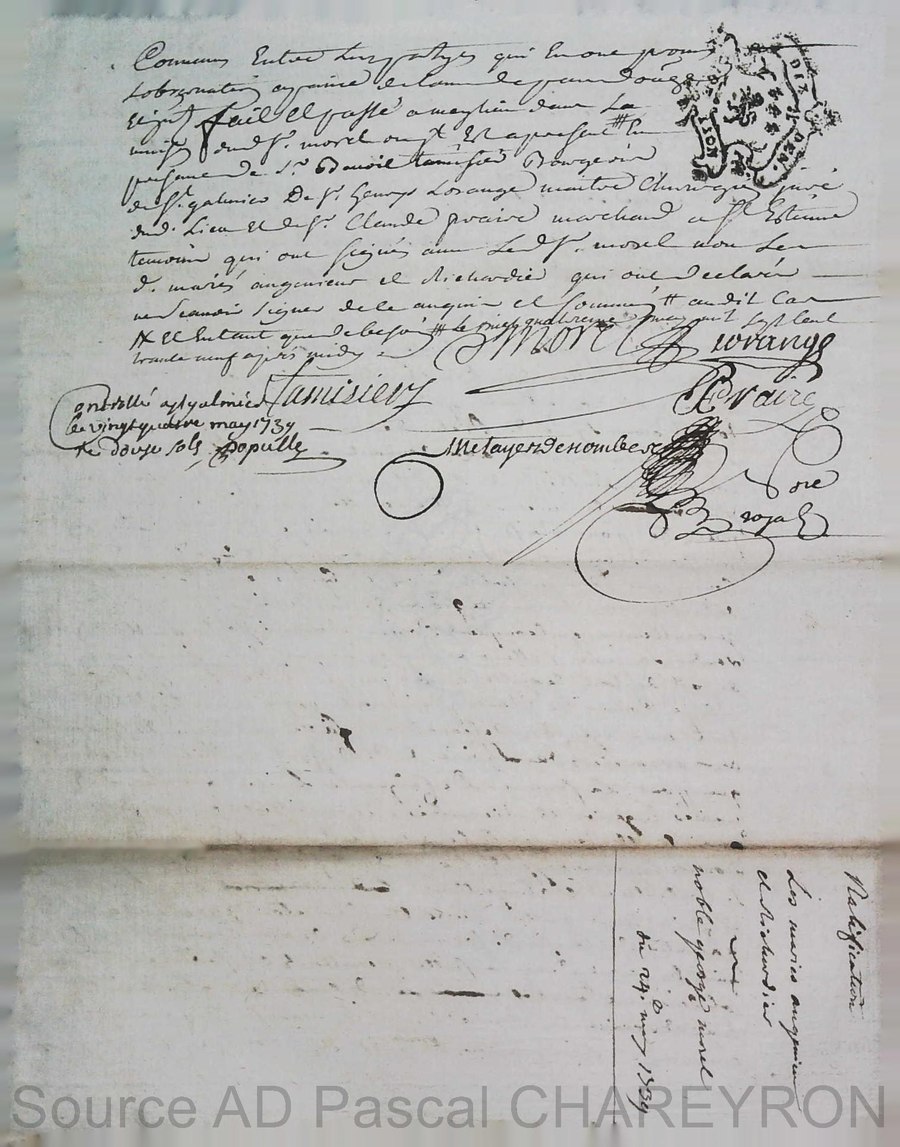 Communs Entre Les partyes qui En ont promis
Lobservation a peine de tous
fait Et passé a meylieu dans La
maison dud Sr. morel ou Est a present En
presence de Sr. Benoit tamisier Bourgeois
de St. galmier De Sr. George Lorange maitre Chirurgien juré
dud. Lieu Et de Sr. Claude praire marchand a St Estienne
temoins qui ont signés avec Led Sr. morel non Les
d. mariés anguinieur et Richardier qui ont Declarés
ne scavoir signer de ce enquis et Sommés
# Et En tant que de besoin ## Le vingt quatrieme may mil sept cent
trante neuf apres midy
Morel Lorange
Tamisier Praire
Controllé a St galmier
le vingt quatre may 1739
re douze sols populle
Metayer Denombe
Nore
Royal
DIX DEN.
LION
Ratification
Les mariés anguinieur
et Richardier
a
noble george morel
du 24e. may 1739
Source AD Pascal CHAREYRON